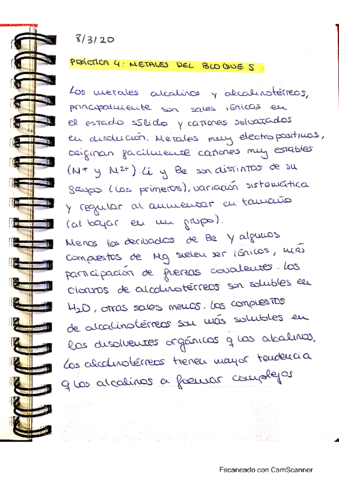 8/3/20
PRÁCTICA 4: METALES DEL BLOQUE S
Los metales alcalinos y alcalinotérreos,
principalmente son sales iónicas en
el estado sólido y cationes solvatados
en disolución. Metales muy electropositivos,
originan facilmente cationes muy estables
(M+ y M2+). Li y Be son distintos de su
grupo (los primeros), variación sistemática
y regular al aumentar su tamaño
(al bajar en un grupo).
Menos los derivados de Be y algunos
compuestos de Mg suelen ser iónicos, más
participación de fuerzas covalentes. Los
cloruros de alcalinotérreos son solubles en
H2O, otras sales menos. Los compuestos
de alcalinotérreos son más solubles en
los disolventes orgánicos q los alcalinos.
Los alcalinotérreos tienen mayor tendencia
q los alcalinos a formar complejos
Escaneado con CamScanner